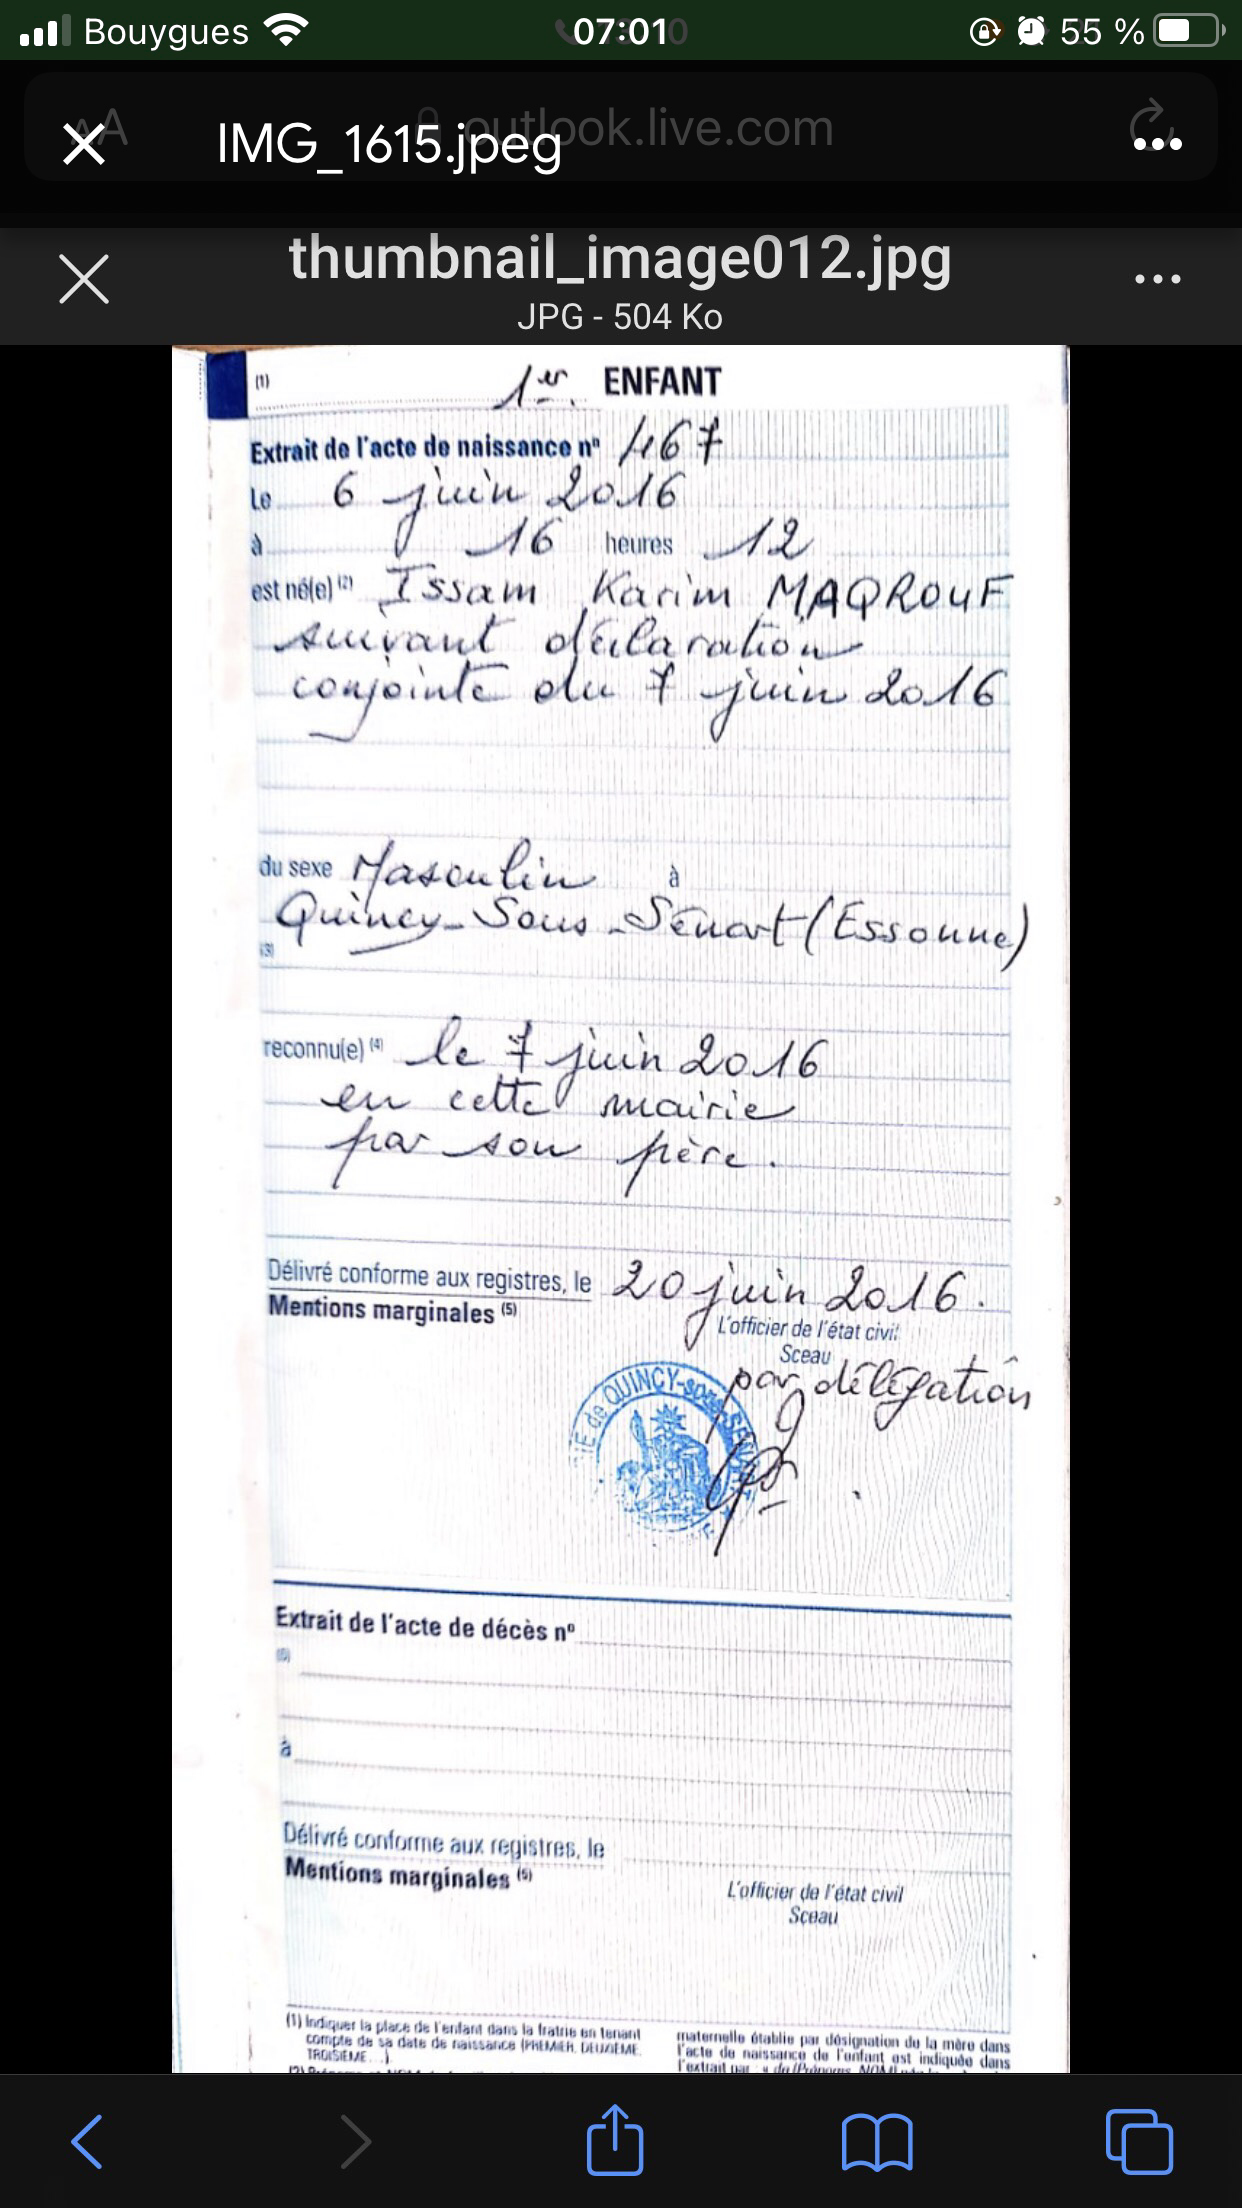 Bouygues 07:01 55 %
outlook.live.com
IMG_1615.jpeg
thumbnail_image012.jpg
JPG - 504 Ko
(1) 1er. ENFANT
Extrait de l'acte de naissance nº 467
Le 6 juin 2016
à 16 heures 12
est né(e) (2) Issam Karim MAQROUF
suivant déclaration
conjointe du 7 juin 2016
du sexe Masculin à
Quincy-Sous-Sénart (Essonne)
(3)
reconnu(e) (4) le 7 juin 2016
en cette mairie
par son père.
Délivré conforme aux registres, le 20 juin 2016.
Mentions marginales (5)
L'officier de l'état civil
Sceau
par délégation
IE de QUINCY-sous-SENART
Extrait de l'acte de décès nº
(6)
à
Délivré conforme aux registres, le
Mentions marginales (5)
L'officier de l'état civil
Sceau
(1) Indiquer la place de l'enfant dans la fratrie en tenant
compte de sa date de naissance (PREMIER, DEUXIÈME,
TROISIÈME...)
maternelle établie par désignation de la mère dans
l'acte de naissance de l'enfant est indiquée dans
l'extrait par